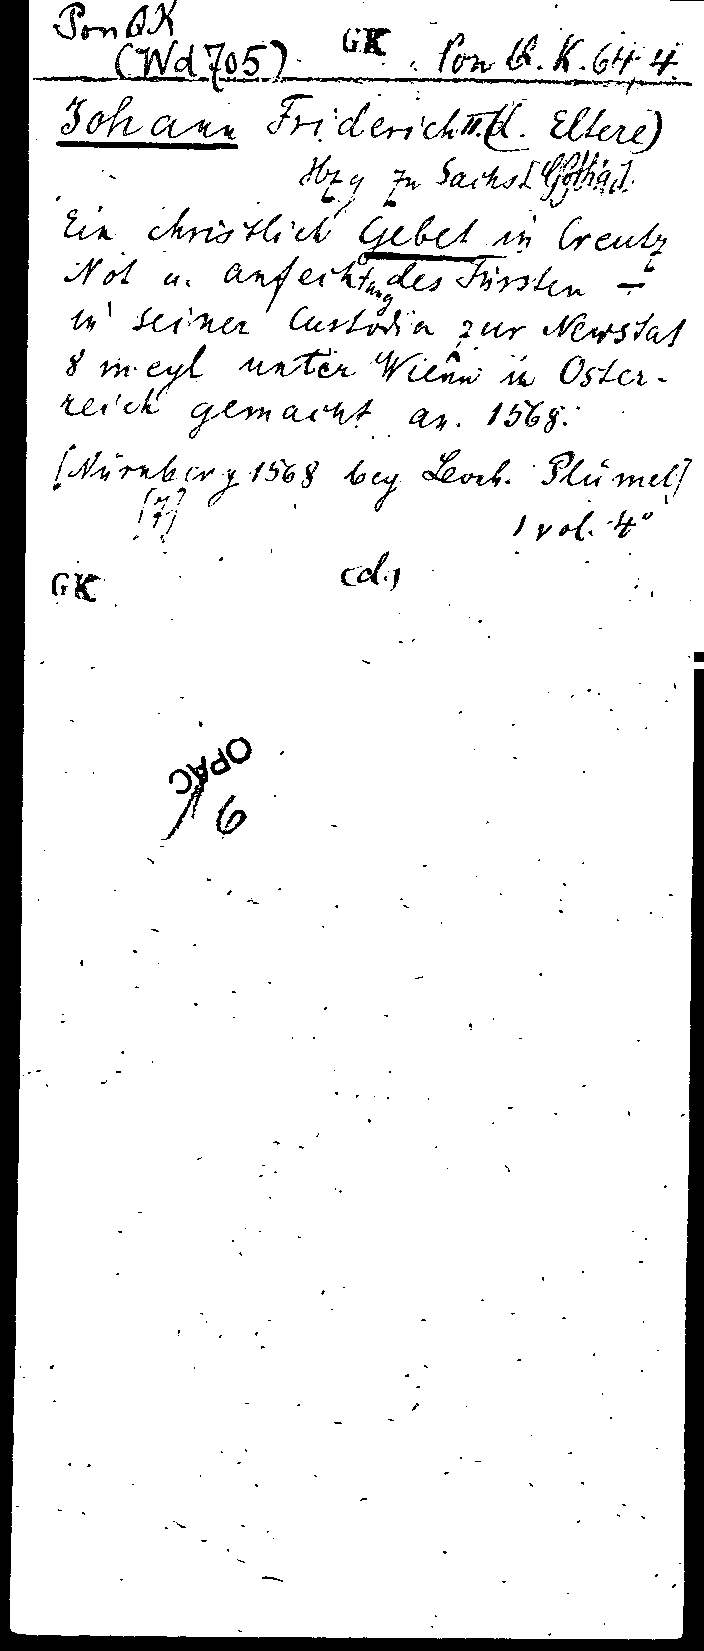 Pon QK
(Wd 705) GK Pon QK. 64, 4
Johann Friderich II. (d. Eltere)
Hzg zu Sachs. [Gotha].
Ein christlich Gebet in Creutz
Not u. anfechtung des Fürsten —
in seiner Custodia zur Newstat
8 meyl unter Wienn in Oster-
reich gemacht an. 1568.
[Nürnberg 1568 bey Leoh. Plümel]
[7] 1 vol. 4°
GK (d.)
OPAC
6